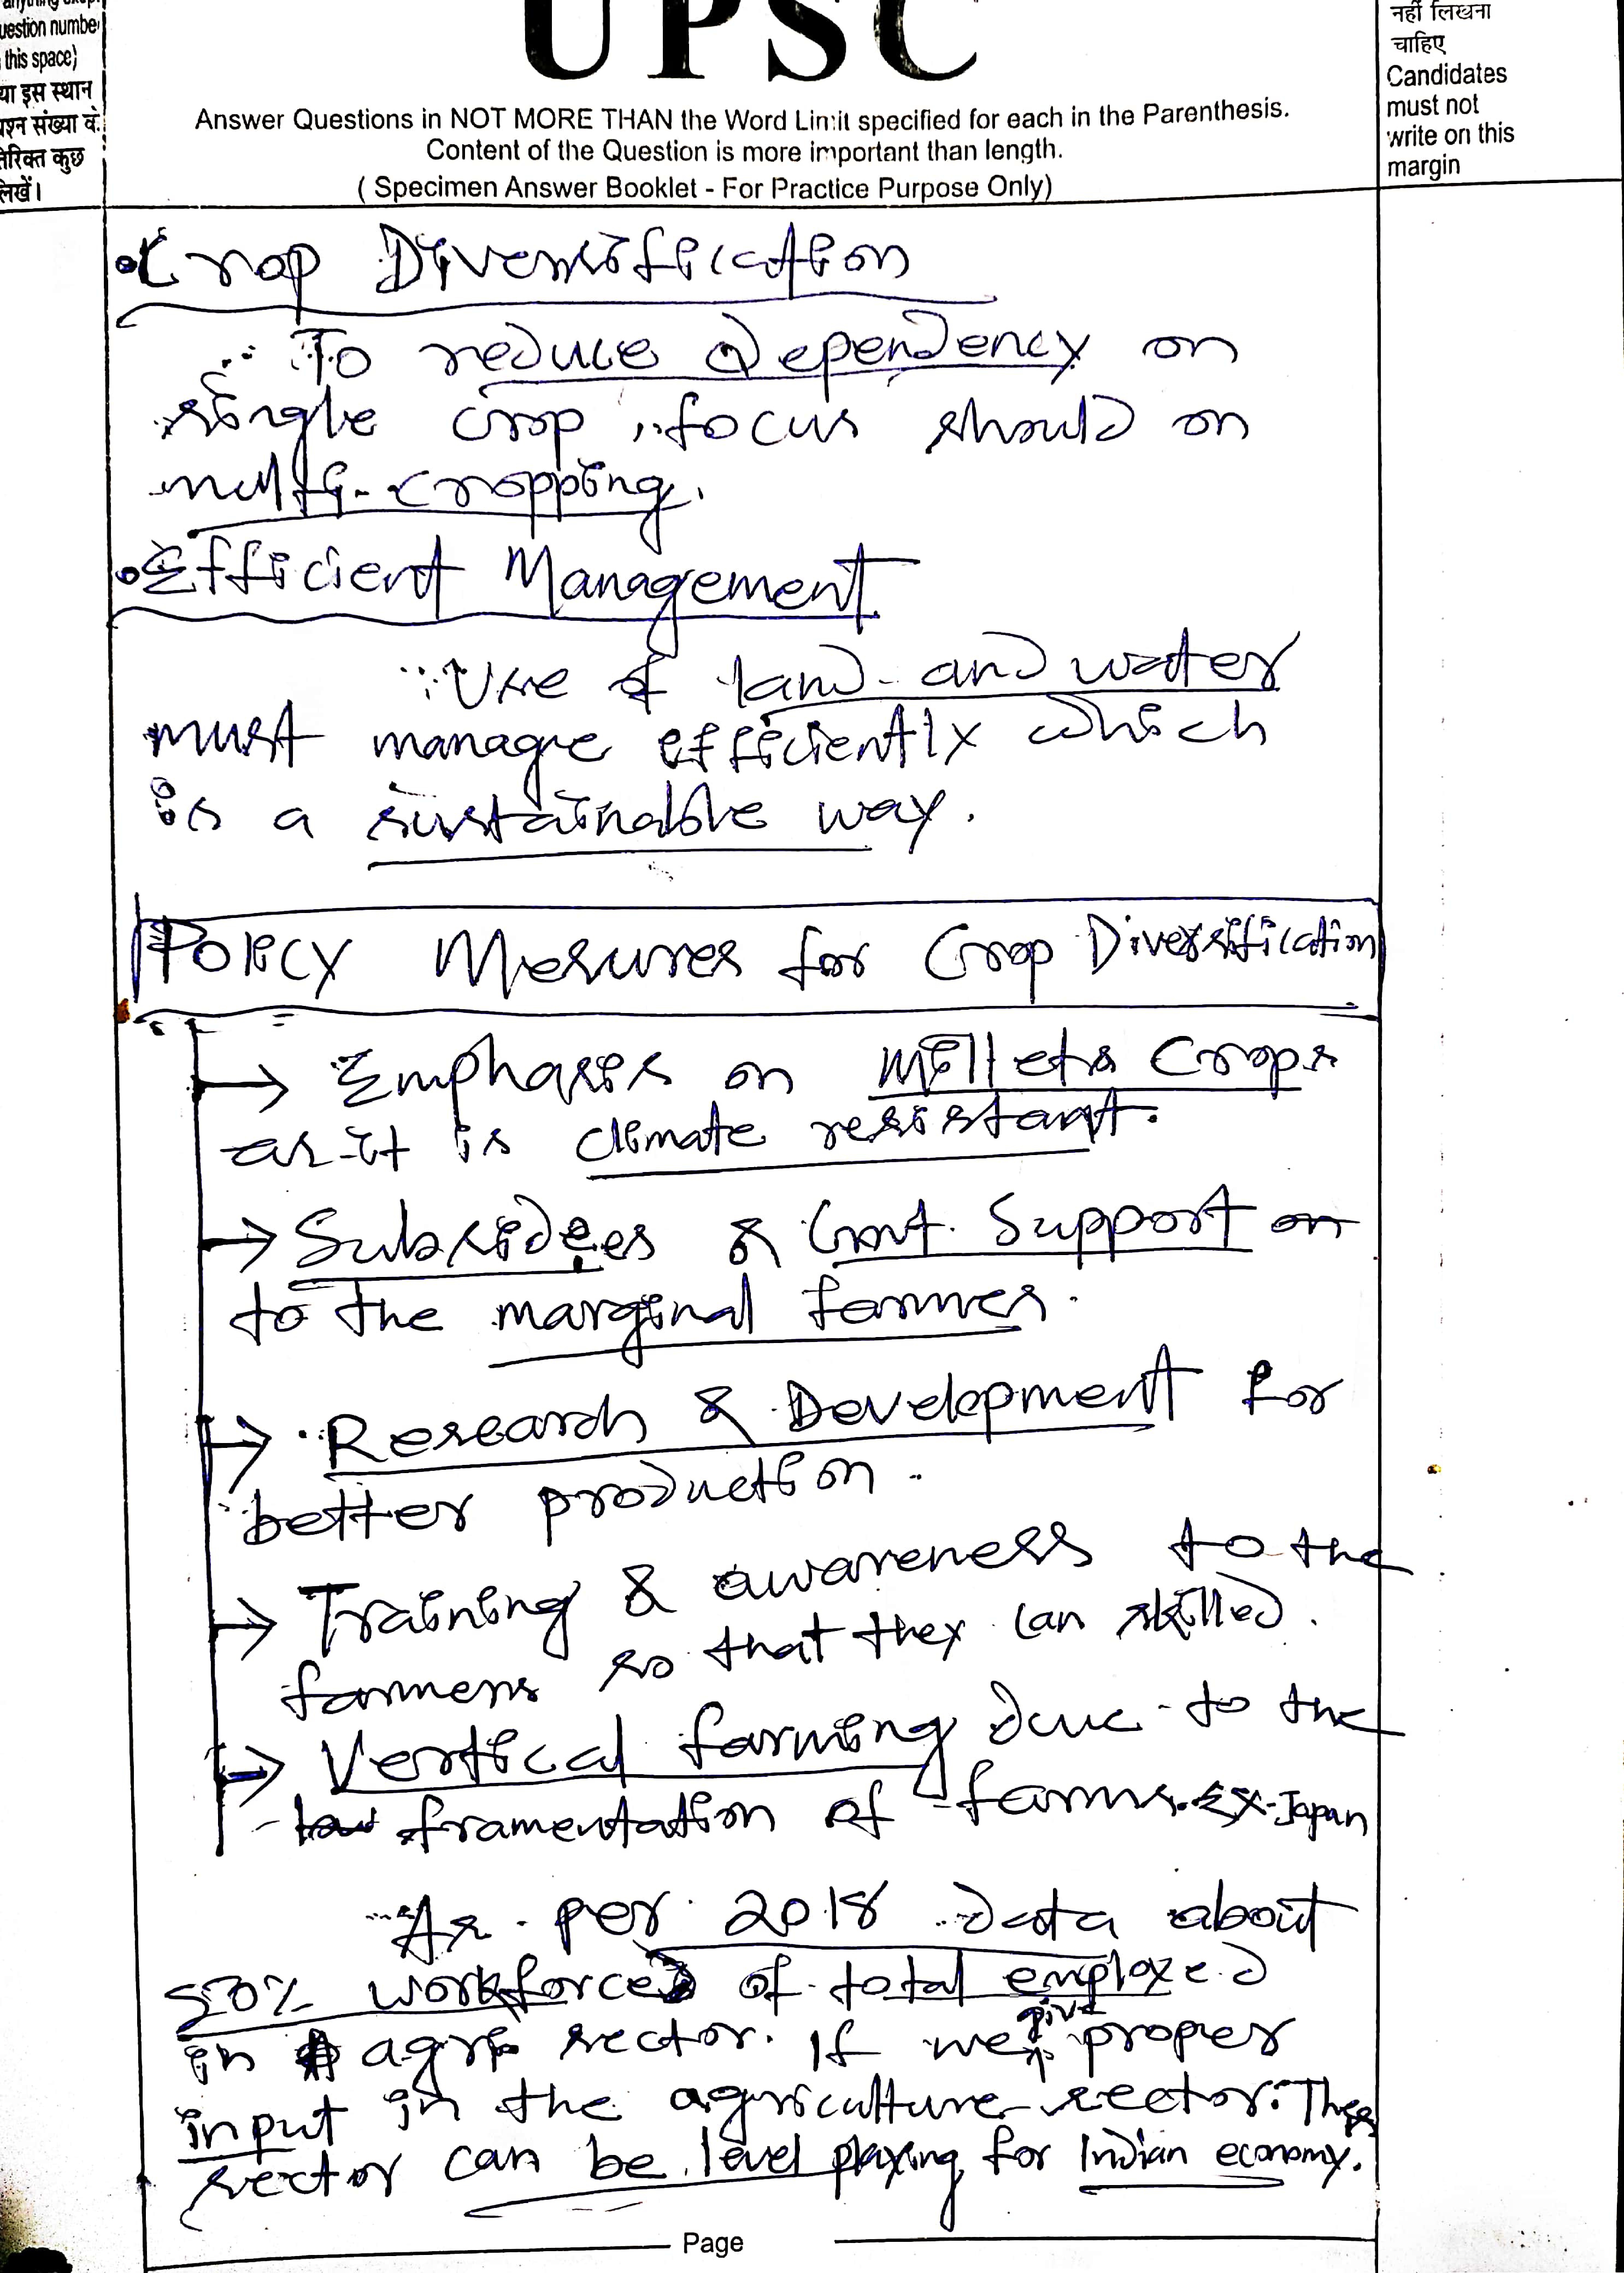 uestion number
this space)
या इस स्थान
प्रश्न संख्या के
तेरिक्त कुछ
लिखें।
UPSC
Answer Questions in NOT MORE THAN the Word Limit specified for each in the Parenthesis.
Content of the Question is more important than length.
( Specimen Answer Booklet - For Practice Purpose Only)
नहीं लिखना
चाहिए
Candidates
must not
write on this
margin
• Crop Diversification
To reduce dependency on
single crop, focus should on
multi-cropping.
• Efficient Management
Use of land and water
must manage efficiently which
is a sustainable way.
Policy Mesures for Crop Diversification
→ Emphasis on Millets Crops
as it is climate resistant.
→ Subsidees & Govt. Support on
to the marginal farmer.
→ Research & Development for
better production.
→ Training & awareness to the
farmers so that they can skilled.
→ Vertical farming due to the
framentation of farms. Ex-Japan
As per 2018 data about
50% workforce of total employed
in agri sector. If we give proper
input in the agriculture sector. This
sector can be level playing for Indian economy.
Page